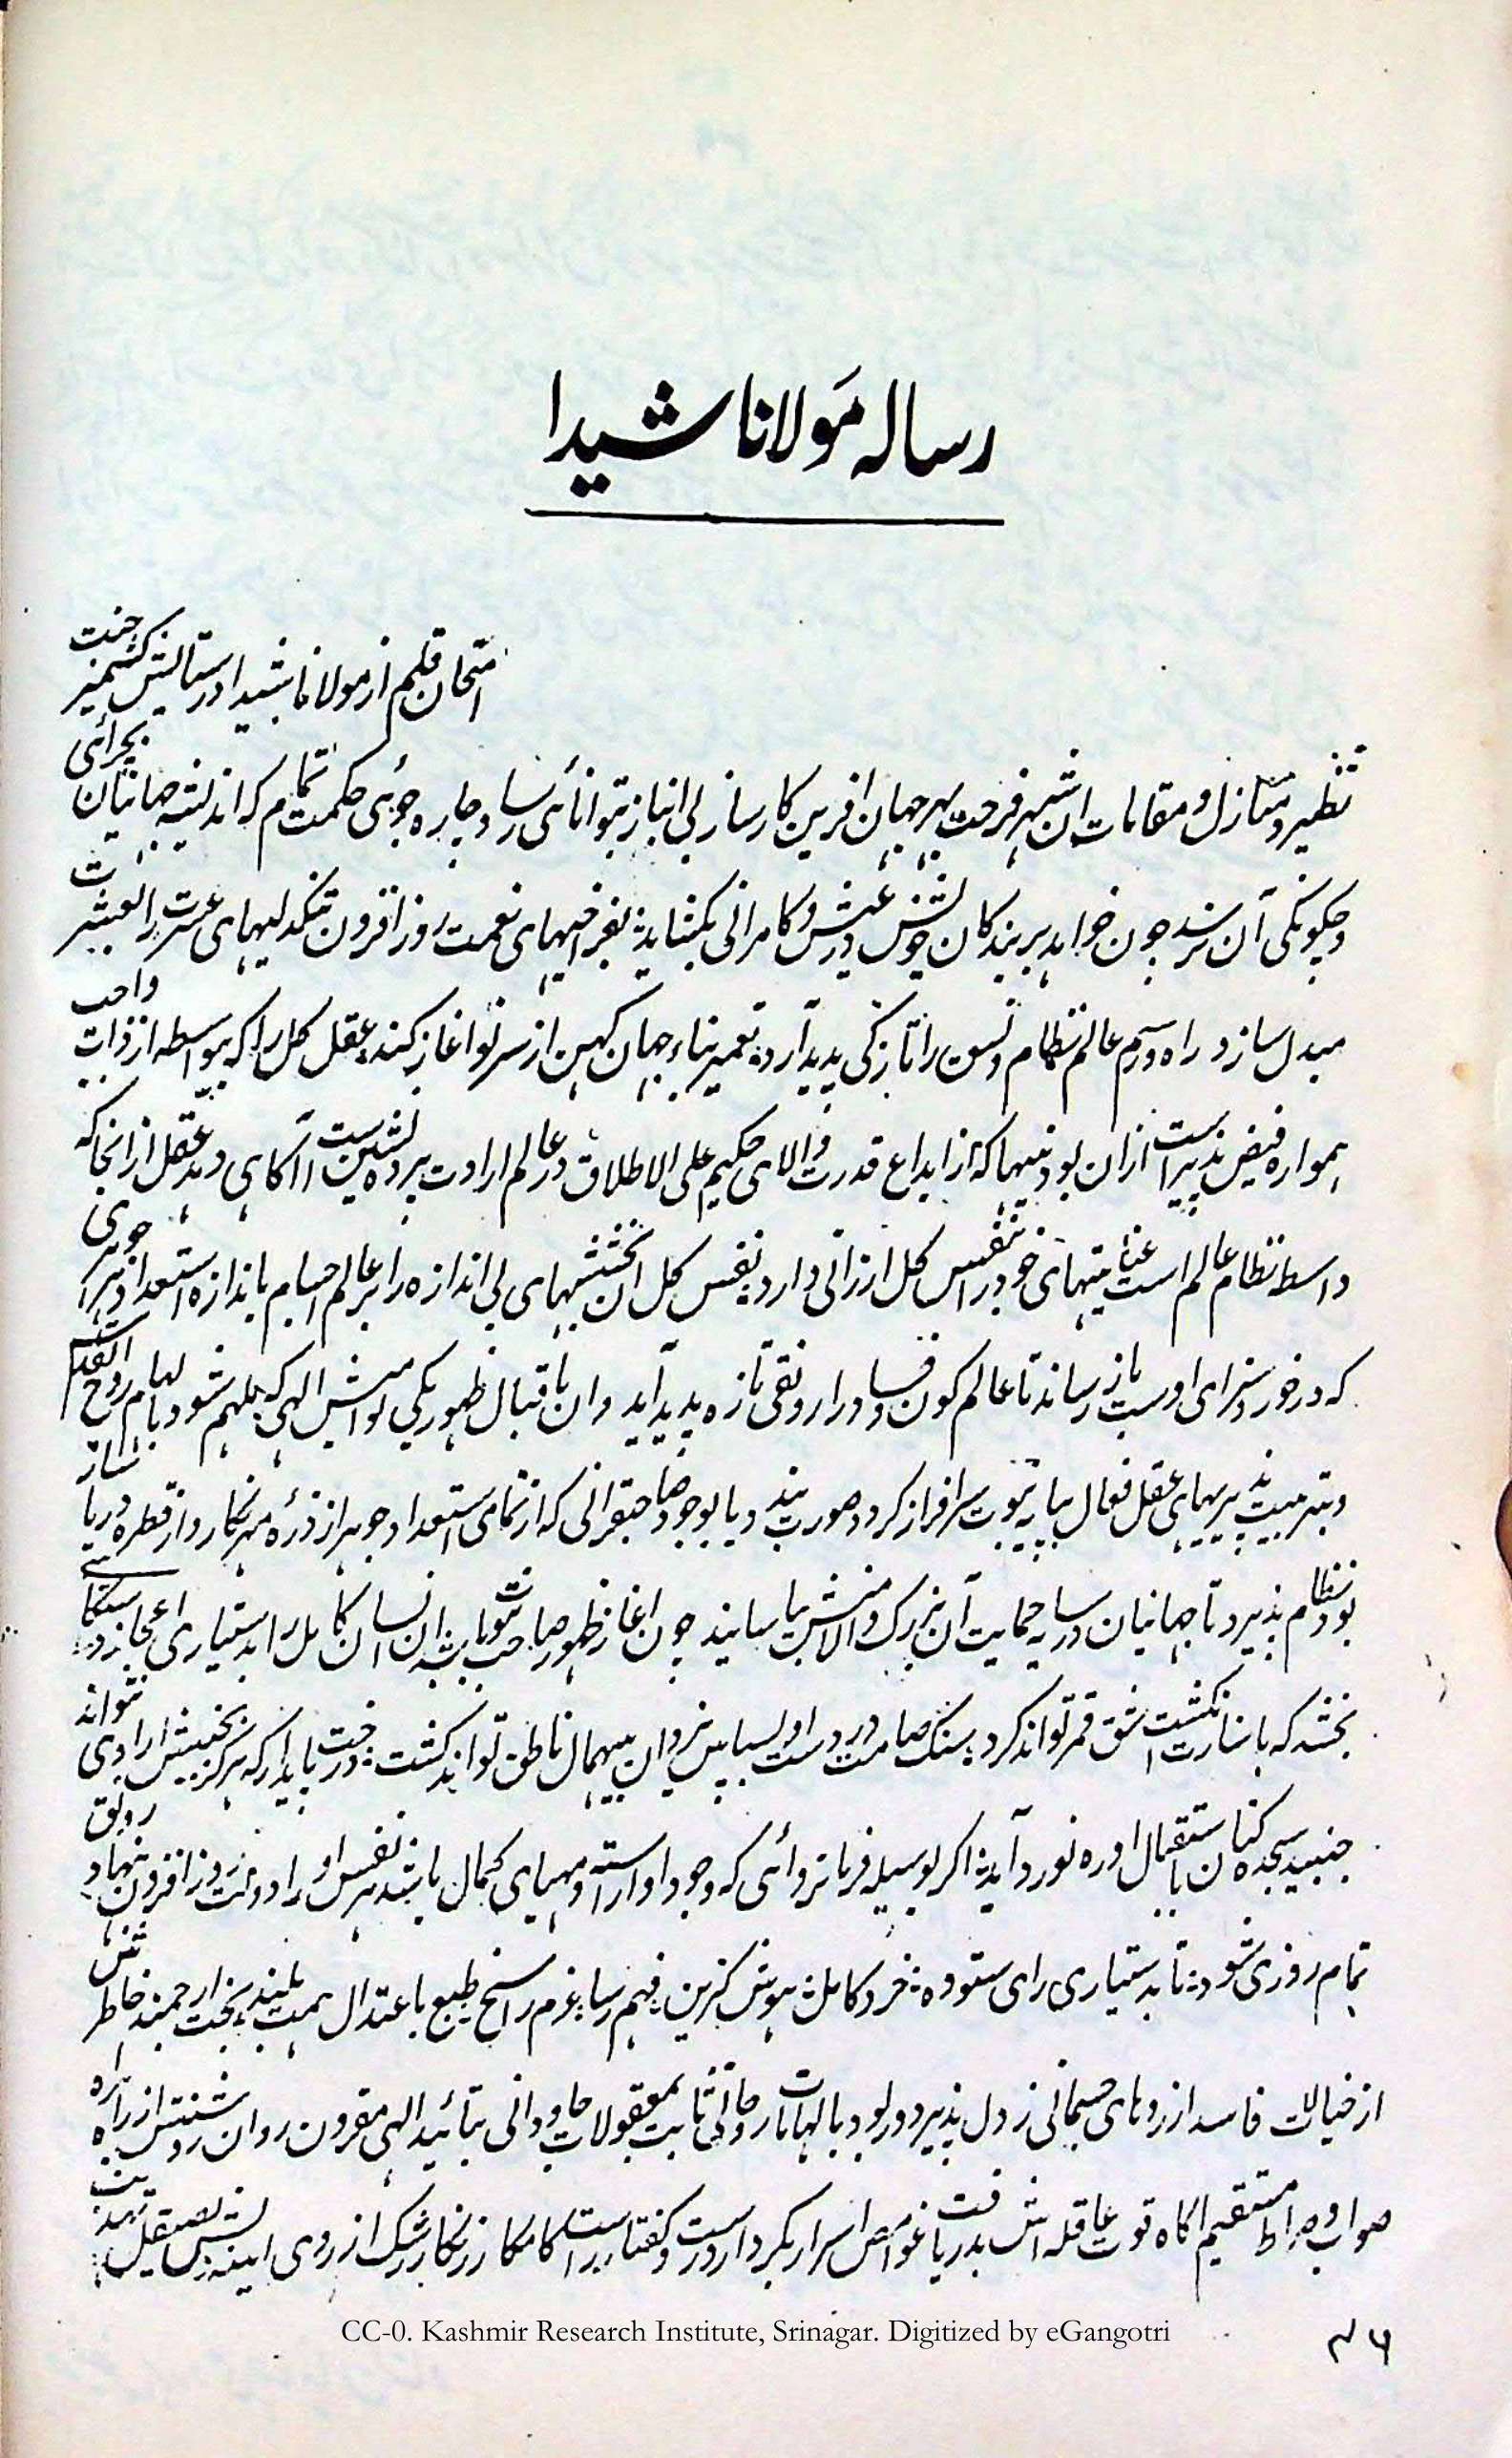 رساله مولانا شیدا
امتحان قلم از مولانا شیدا در ستایش کشمیر جنت
نظیر و منازل و مقامات ان شهر فرحت بهر جهان افرین کارساز بی انباز بتوانائی رسا و چاره جوئی حکمت تمام که اندیشه جهانیان بچرائی
و چگونگی آن نرسد چون خواهد بر بندکان خویش در عیش و کامرانی بکشاید بفراخیهای نعمت روز افزون تنکدلیهای عسرت را بعیشرت
مبدل سازد و راه و رسم عالم نظام و نسق را تازکی پدید آرد تعمیر بناء جهان کهن از سر نو اغاز کند عقل کل را که بیواسطه از ذات واجب
همواره فیض پذیر است ازان بودنیها که از ابداع قدرت والای حکیم علی الاطلاق در عالم ارادت پرده نشین است آکاهی دهد عقل از انجا که
واسطه نظام عالم است عنایتهای خود را بنفس کل ارزانی دارد نفس کل ان بخششهای بی اندازه را بر عالم اجسام باندازه استعداد هر جوهری
که در خور و سزای اوست باز رساند تا عالم کون و فساد را رونقی تازه پدید آید وان باقبال ظهور یکی بود الهی که ملهم شود بالهام روح القدس
و بتربیت پذیریهای عقل فعال بپایه نبوت سرافراز کردد صورت بندد و یا بوجود صاحبقرانی که از تمامی استعداد جوهر از ذره مهر نکار و از قطره دریا
بود نظام پذیرد تا جهانیان در سایه حمایت آن بزرک والامنش بیاسایند چون اغاز ظهور صاحب نبوت باشد ان انسان کامل را بدستیاری اعجاز دستکاهی
بخشد که باشارت انکشت شق قمر تواند کرد سنک صامت در دست او بسپاس یزدان بیهمال ناطق تواند کشت درخت پایدار که هرکز بجنبش ارادی نتواند
جنبید سجده کنان باستقبال او ره نورد آید اکر بوسیله فرمانروائی که وجود او اراسته و مهیای کمال باشد نفس او را دولت روز افزون رونق
تمام روزی شود تا بدستیاری رای ستوده خرد کامل هوش کزین فهم رسا عزم راسخ طبع باعتدال همت بلند بخت ارجمند خاطر
از خیالات فاسد ارزوهای جسمانی دل پذیرد و بود بالهامات روحانی بمعقولات جاودانی بتائید الهی مقرون روان روشنش از راه
صواب و صراط مستقیم اکاه قوت عاقله اش بدریافت غوامض اسرار بکردار درست و کفتار راست کامکار زنکار شک از روی ایینه
۴۶
CC-0. Kashmir Research Institute, Srinagar. Digitized by eGangotri